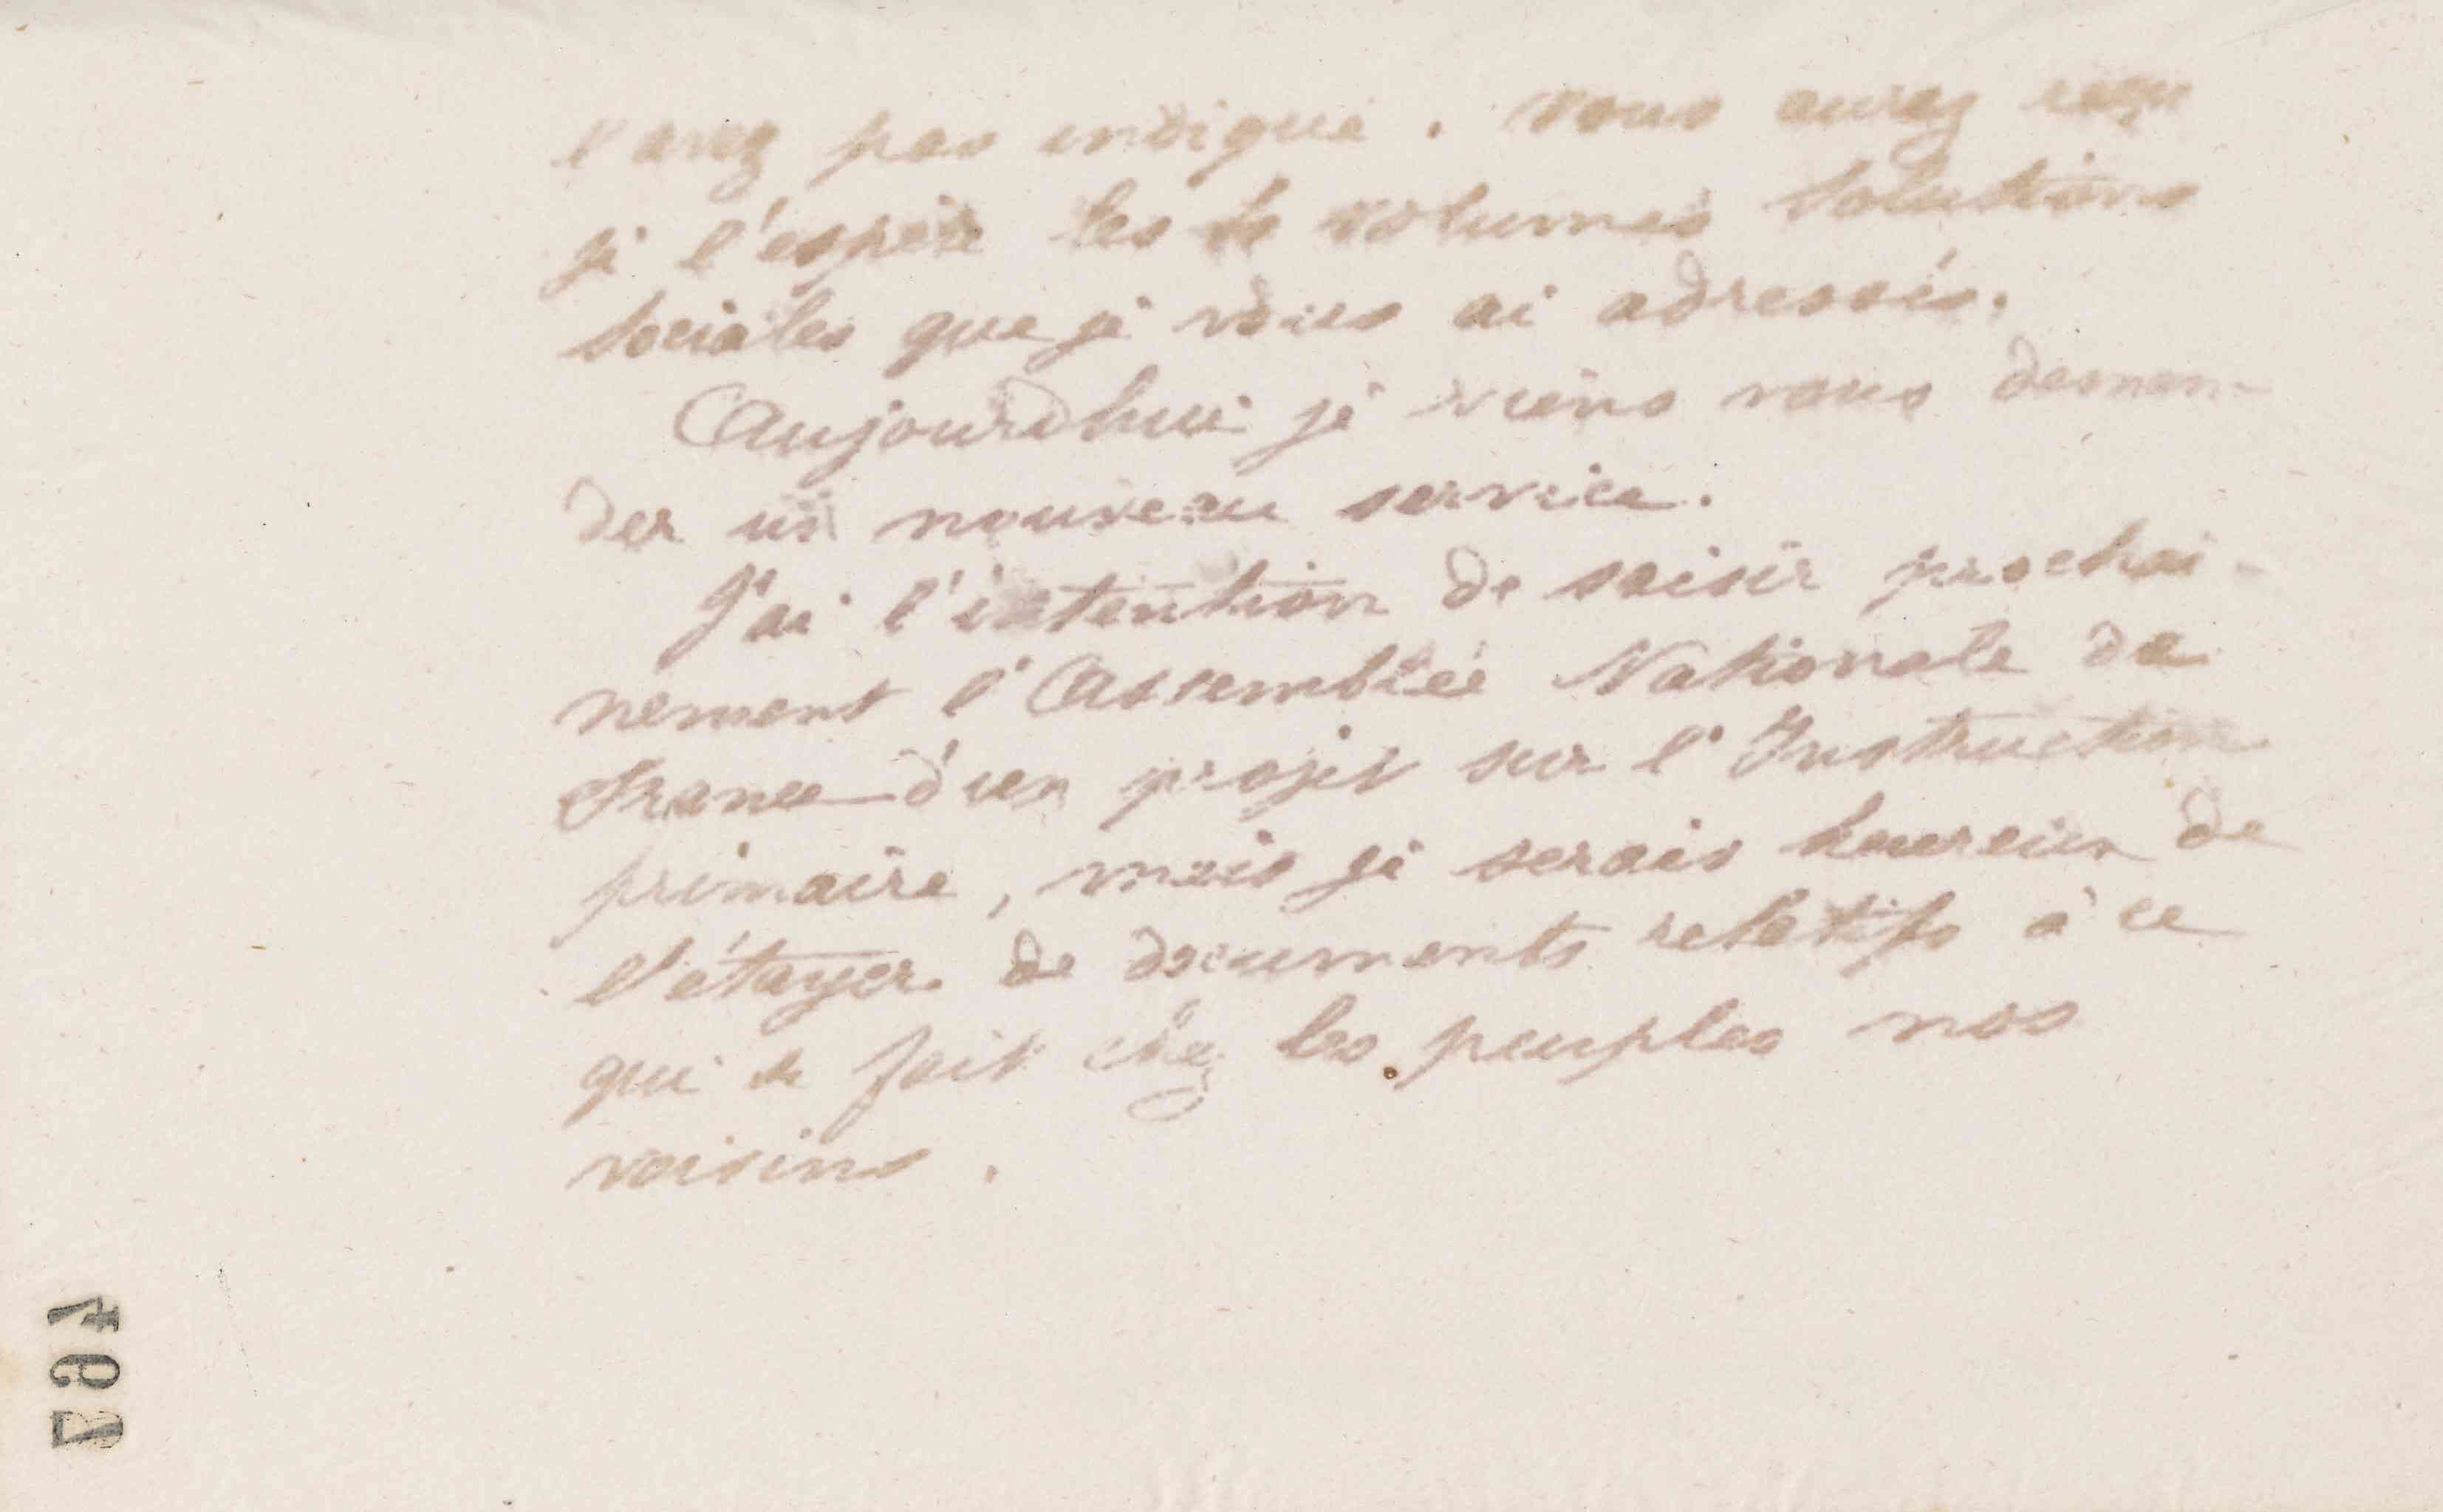 l'avez pas indiqué. Vous aurez reçu
je l'espère les volumes Solutions
sociales que je vous ai adressés.
Aujourd'hui je viens vous deman-
der un nouveau service.
J'ai l'intention de saisir prochai-
nement l'Assemblée Nationale de
France d'un projet sur l'Instruction
primaire, mais je serais heureux de
l'étayer de documents relatifs à ce
qui se fait chez les peuples nos
voisins.
467